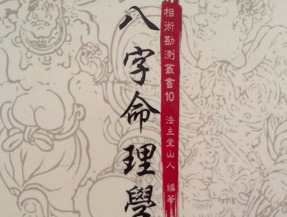 八字命理學
相術勘測叢書10 法主堂山人 編著